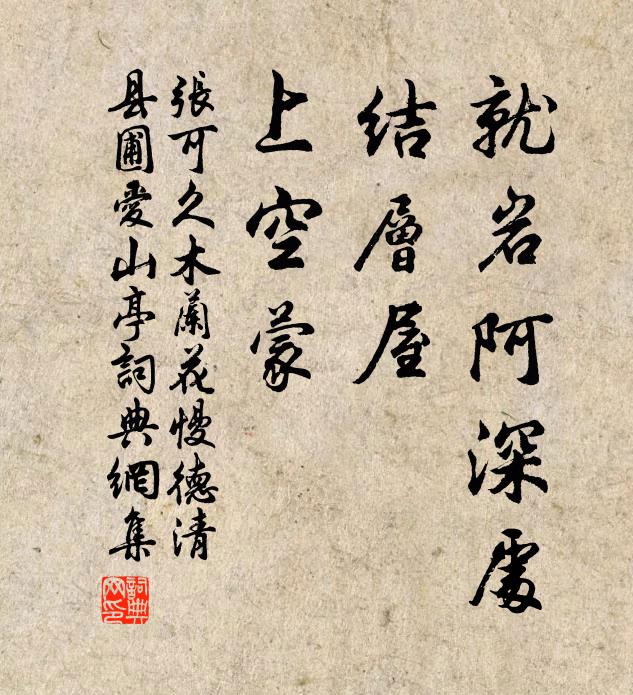 就岩阿深處
結層屋
上空蒙
張可久木蘭花慢德清
县圃愛山亭詞典網集
詞典网印